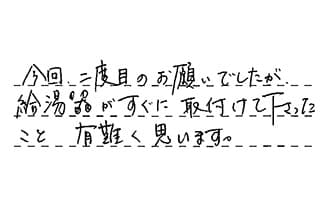 今回、二度目のお願いでしたが、
給湯器がすぐに取付けて下さった
こと 有難く思います。